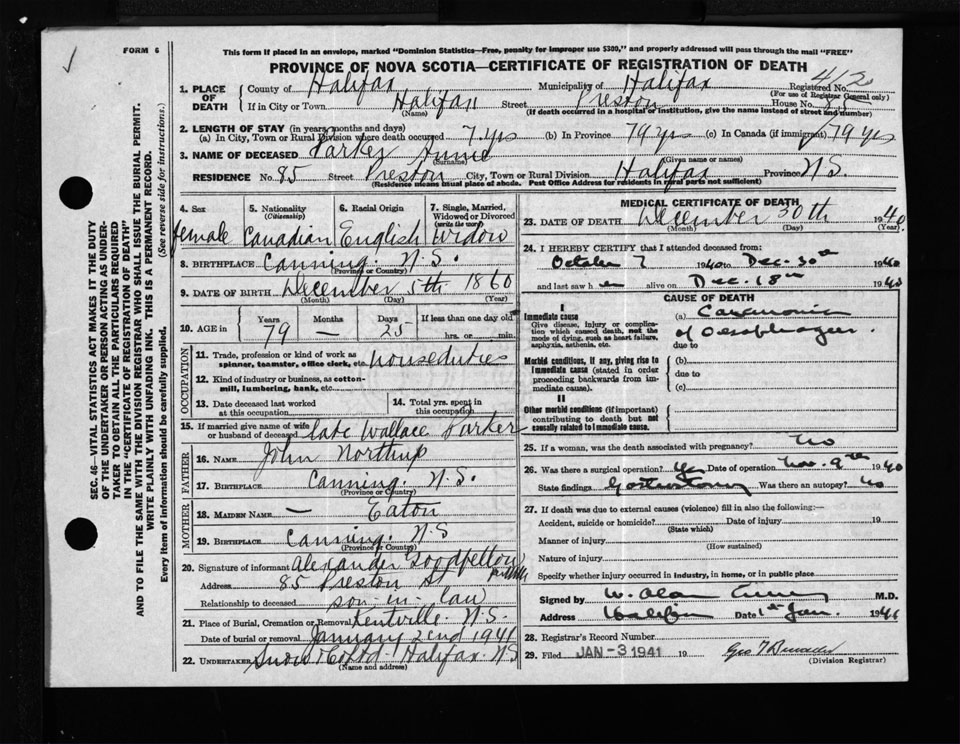 FORM 6
This form if placed in an envelope, marked "Dominion Statistics—Free, penalty for improper use $300," and properly addressed will pass through the mail "FREE"
PROVINCE OF NOVA SCOTIA—CERTIFICATE OF REGISTRATION OF DEATH
1. PLACE OF DEATH
County of Halifax Municipality of Halifax Registered No. 412
(For use of Registrar General only)
If in City or Town Halifax Street Preston House No. 85
(Name) (If death occurred in a hospital or institution, give the name instead of street and number)
2. LENGTH OF STAY (in years, months and days)
(a) In City, Town or Rural Division where death occurred 7 yrs (b) In Province 79 yrs (c) In Canada (if immigrant) 79 yrs
3. NAME OF DECEASED Parker Annie
(Surname) (Given name or names)
RESIDENCE No. 85 Street Preston City, Town or Rural Division Halifax Province N.S.
(Residence means usual place of abode. Post Office Address for residents in rural parts not sufficient)
4. Sex female
5. Nationality (Citizenship) Canadian
6. Racial Origin English
7. Single, Married, Widowed or Divorced (write the word) Widow
8. BIRTHPLACE Canning. N.S.
(Province or Country)
9. DATE OF BIRTH December 5th 1860
(Month) (Day) (Year)
10. AGE in Years 79 Months — Days 25 If less than one day old
hrs. or min.
OCCUPATION
11. Trade, profession or kind of work as spinner, teamster, office clerk, etc. house duties
12. Kind of industry or business, as cotton-mill, lumbering, bank, etc.
13. Date deceased last worked at this occupation
14. Total yrs. spent in this occupation
15. If married give name of wife or husband of deceased late Wallace Parker
FATHER
16. NAME John Northup
17. BIRTHPLACE Canning. N.S.
(Province or Country)
MOTHER
18. MAIDEN NAME — Eaton
19. BIRTHPLACE Canning. N.S
(Province or Country)
20. Signature of informant Alexander Goodfellow
Address 85 Preston St
Relationship to deceased son-in law
21. Place of Burial, Cremation or Removal Kentville. N.S.
Date of burial or removal January 2nd 1941
22. UNDERTAKER Snow Halifax. NS
(Name and address)
MEDICAL CERTIFICATE OF DEATH
23. DATE OF DEATH December 30th 1940
(Month) (Day) (Year)
24. I HEREBY CERTIFY that I attended deceased from:
October 7 1940 to Dec. 30th 1940
and last saw h er alive on Dec. 18th 1940
CAUSE OF DEATH
I
Immediate cause
Give disease, injury or complication which caused death, not the mode of dying, such as heart failure, asphyxia, asthenia, etc.
(a) Carcinoma
of Oesophagus.
due to
Morbid conditions, if any, giving rise to immediate cause (stated in order proceeding backwards from immediate cause).
(b)
due to
(c)
II
Other morbid conditions (if important) contributing to death but not causally related to immediate cause.
25. If a woman, was the death associated with pregnancy? No
26. Was there a surgical operation? Yes Date of operation Nov. 9th 1940
State findings Gastrostomy Was there an autopsy? No
27. If death was due to external causes (violence) fill in also the following:—
Accident, suicide or homicide? Date of injury 19
(State which)
Manner of injury
(How sustained)
Nature of injury
Specify whether injury occurred in industry, in home, or in public place
Signed by W. Alan M.D.
Address Halifax Date 1st Jan. 1941
28. Registrar's Record Number
29. Filed JAN -3 1941 19
(Division Registrar)
SEC. 46—VITAL STATISTICS ACT MAKES IT THE DUTY
OF THE UNDERTAKER OR PERSON ACTING AS UNDER-
TAKER TO OBTAIN ALL THE PARTICULARS REQUIRED
IN THE "CERTIFICATE OF REGISTRATION OF DEATH"
AND TO FILE THE SAME WITH THE DIVISION REGISTRAR WHO SHALL ISSUE THE BURIAL PERMIT.
WRITE PLAINLY WITH UNFADING INK. THIS IS A PERMANENT RECORD.
Every item of information should be carefully supplied. (See reverse side for instructions.)